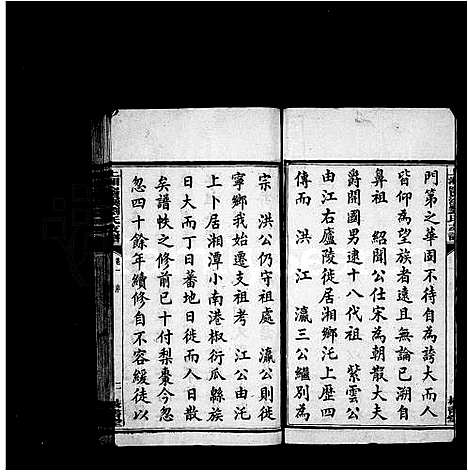 門第之華固不待自為誇大而人
皆仰為望族者遠且無論已我朝
鼻祖 紹聞公仕宋為朝散大夫
爵開國男逮十八代祖 紫雲公
由江右廬陵徙居湘鄉沱上歷四
傳而 洪 江 瀛三公繼別為
宗 洪公仍守祖處 瀛公則徙
寧鄉我始遷支祖考 江公由沱
上卜居湘潭小南港椒衍瓜縣族
日大而丁日蕃地日徙而人日散
矣譜帙之修前已十付梨棗今忽
忽四十餘年續修自不容緩徒以